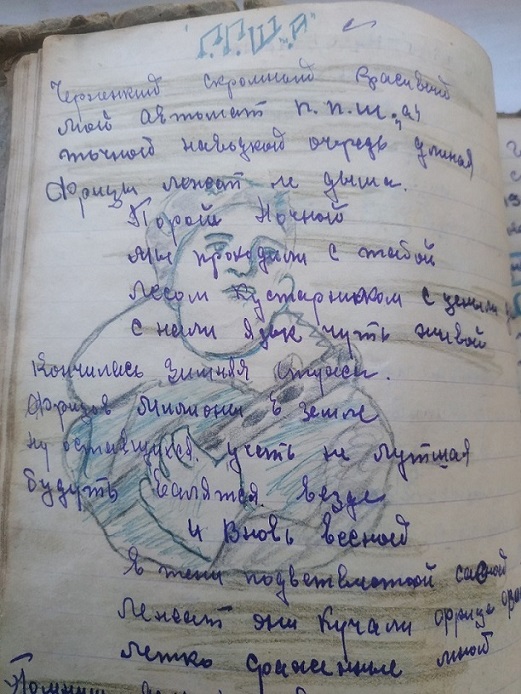 "П.П.Ш.А"
Черненкий скромноий Красивый
мой автомат п.п.ш.,а"
точной наводкой очередь длиная
Фрицы лежат не дыша.
Порой Ночной
мы проходили с тобой
лесом кустарником с ценным
с нами язык чуть живой
Кончилась зимняя стужа.
Фрицов милионы в земле
ну оставщихся. участь не лутшая
будуть валятся. везде
и вновь весной
в тени подцветлистой
лежат они кучами фрицы
легко сраженные мной
Помниш